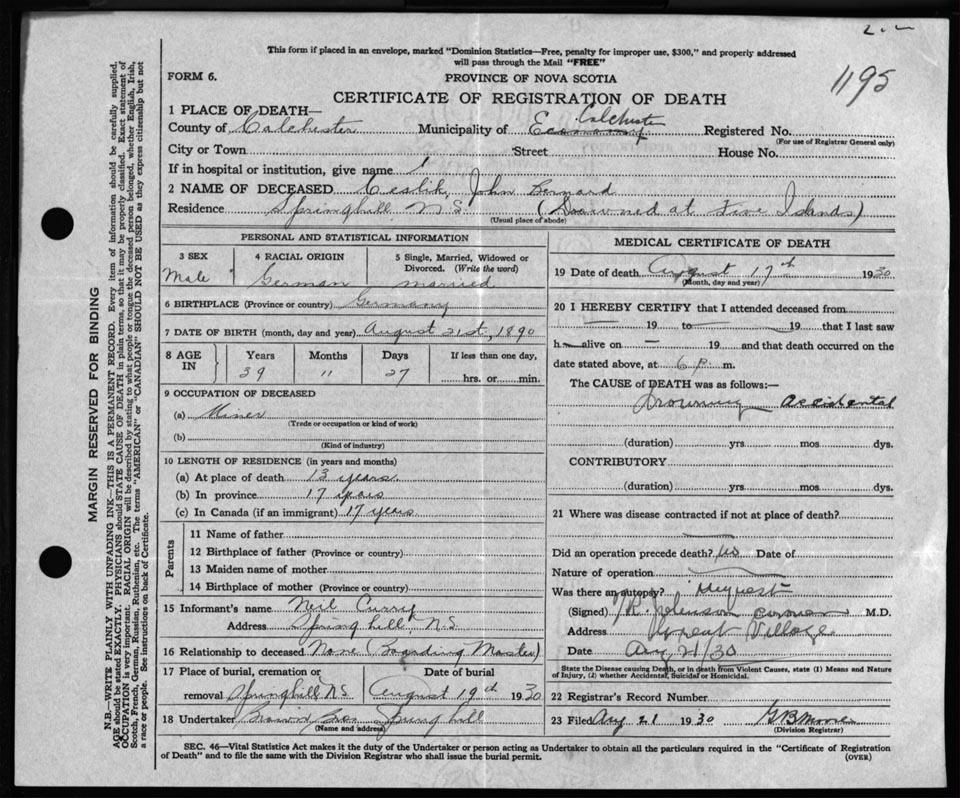 2
This form if placed in an envelope, marked "Dominion Statistics—Free, penalty for improper use, $300," and properly addressed
will pass through the Mail "FREE"
FORM 6.
PROVINCE OF NOVA SCOTIA
1195
CERTIFICATE OF REGISTRATION OF DEATH
1 PLACE OF DEATH—
Colchester
County of Colchester Municipality of Economy Registered No.
(For use of Registrar General only)
City or Town Street House No.
If in hospital or institution, give name
2 NAME OF DECEASED John Bernard
Residence Springhill, N.S. (Drowned at Five Islands)
(Usual place of abode)
PERSONAL AND STATISTICAL INFORMATION
3 SEX 4 RACIAL ORIGIN 5 Single, Married, Widowed or
Divorced. (Write the word)
Male German married
6 BIRTHPLACE (Province or country) Germany
7 DATE OF BIRTH (month, day and year) August 21st, 1890
8 AGE IN Years Months Days If less than one day,
39 11 27 hrs. or min.
9 OCCUPATION OF DECEASED
(a) Miner
(Trade or occupation or kind of work)
(b)
(Kind of industry)
10 LENGTH OF RESIDENCE (in years and months)
(a) At place of death 13 years
(b) In province 17 years
(c) In Canada (if an immigrant) 17 years
Parents
11 Name of father
12 Birthplace of father (Province or country)
13 Maiden name of mother
14 Birthplace of mother (Province or country)
15 Informant's name Neil Curry
Address Springhill, N.S
16 Relationship to deceased None (Boarding Master)
17 Place of burial, cremation or Date of burial
removal Springhill N.S August 19th 1930
18 Undertaker Bros Springhill
(Name and address)
MEDICAL CERTIFICATE OF DEATH
19 Date of death August 17th 1930
(Month, day and year)
20 I HEREBY CERTIFY that I attended deceased from
— 19 to — 19 that I last saw
h— alive on — 19 and that death occurred on the
date stated above, at 6 P. m.
The CAUSE of DEATH was as follows:—
Drowning accidental
(duration) yrs. mos. dys.
CONTRIBUTORY
(duration) yrs. mos. dys.
21 Where was disease contracted if not at place of death?
Did an operation precede death? no Date of
Nature of operation
Was there an autopsy? Inquest
(Signed) Johnson coroner M.D.
Address Great Village
Date Aug 21/30
State the Disease causing Death, or in death from Violent Causes, state (1) Means and Nature
of Injury, (2) whether Accidental, Suicidal or Homicidal.
22 Registrar's Record Number
23 Filed Aug 21 1930 G B Moore
(Division Registrar)
SEC. 46—Vital Statistics Act makes it the duty of the Undertaker or person acting as Undertaker to obtain all the particulars required in the "Certificate of Registration
of Death" and to file the same with the Division Registrar who shall issue the burial permit.
(OVER)
MARGIN RESERVED FOR BINDING
N.B.—WRITE PLAINLY WITH UNFADING INK—THIS IS A PERMANENT RECORD. Every item of information should be carefully supplied.
AGE should be stated EXACTLY. PHYSICIANS should STATE CAUSE OF DEATH in plain terms, so that it may be properly classified. Exact statement of
OCCUPATION is very important. RACIAL ORIGIN will be described by stating to what people or tongue the deceased person belonged, whether English, Irish,
Scotch, French, German, Russian, Ruthenian, etc. The terms "AMERICAN" or "CANADIAN" SHOULD NOT BE USED as they express citizenship but not
a race or people. See instructions on back of Certificate.